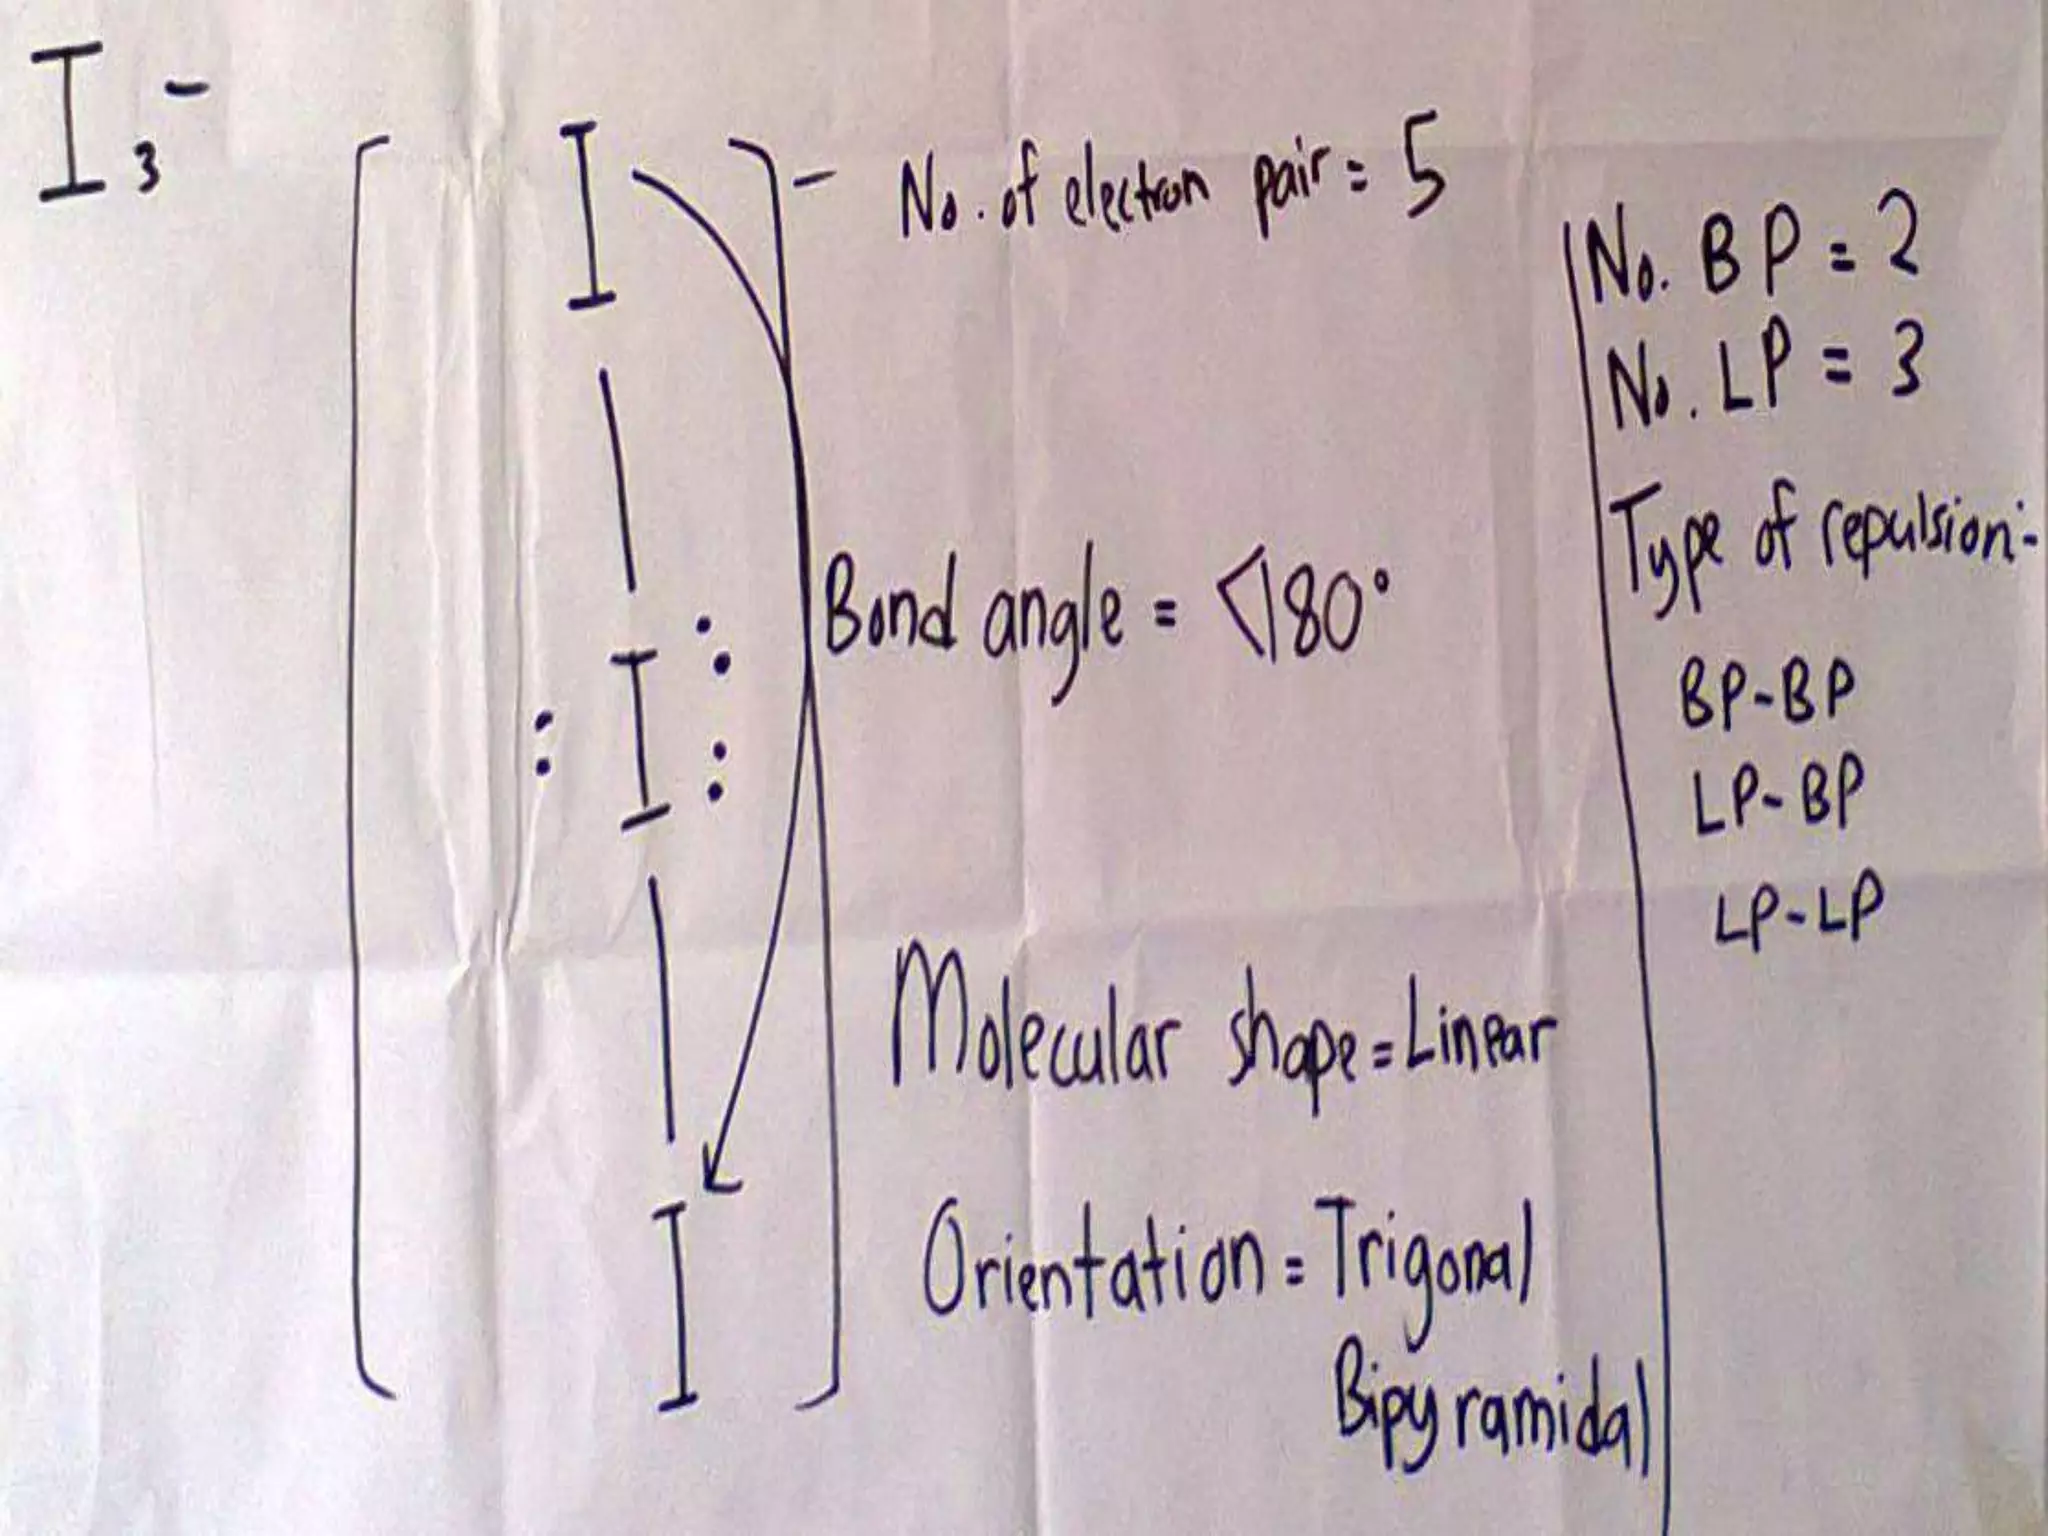 I3-
[ I ]-
No. of electron pair = 5
Bond angle = <180°
: I : :
I
Molecular shape = Linear
Orientation = Trigonal
Bipyramidal
No. BP = 2
No. LP = 3
Type of repulsion:-
BP-BP
LP-BP
LP-LP